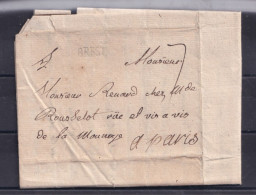 BREST
Monsieur
7
Monsieur Renard chez M de
Rousselot rüe et vis a vis
de la Monnoye
a paris